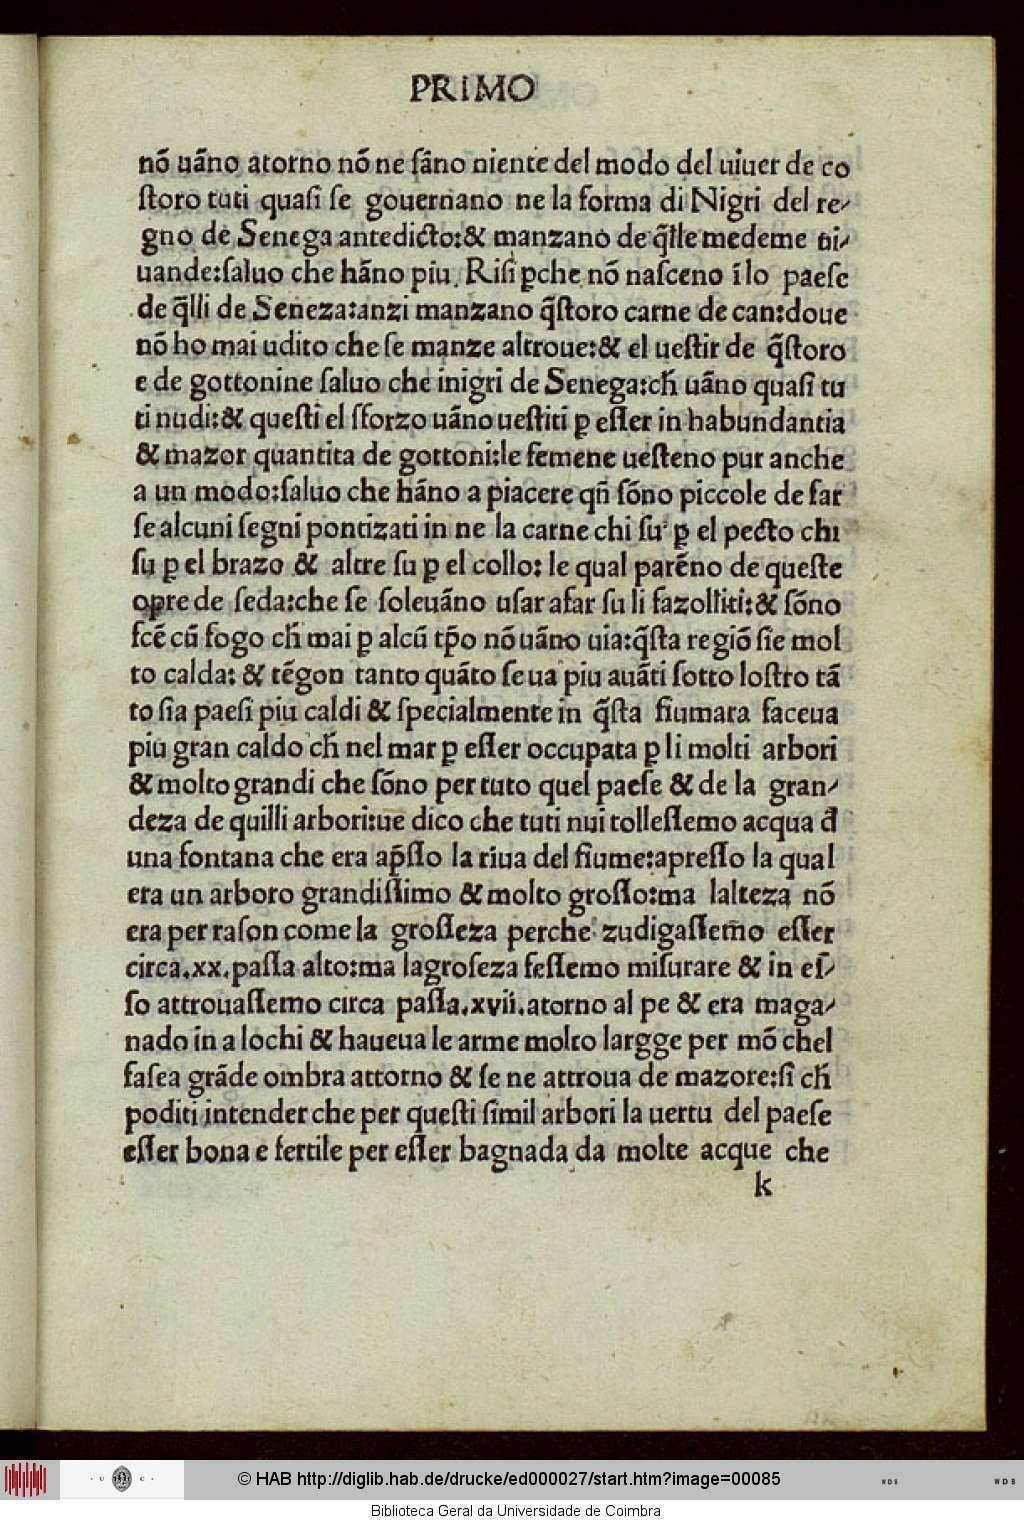 PRIMO
nō uāno atorno nō ne ſāno niente del modo del uiuer de co
ſtoro tuti quaſi ſe gouernano ne la forma di Nigri del re-
gno de Senega antedicto:& manzano de q̃lle medeme ui-
uande:ſaluo che hāno piu Riſi ꝑche nō naſceno ī lo paeſe
de q̃lli de Seneza:anzi manzano q̃ſtoro carne de can:doue
nō ho mai udito che ſe manze altroue:& el ueſtir de q̃ſtoro
e de gottonine ſaluo che inigri de Senega:cħ uāno quaſi tu
ti nudi:& queſti el ſforzo uāno ueſtiti ꝑ eſſer in habundantia
& mazor quantita de gottoni:le femene ueſteno pur anche
a un modo:ſaluo che hāno a piacere qñ ſōno piccole de far
ſe alcuni ſegni pontizati in ne la carne chi ſu ꝑ el pecto chi
ſu ꝑ el brazo & altre ſu ꝑ el collo: le qual parēno de queſte
opre de ſeda:che ſe ſoleuāno uſar afar ſu li fazolliti:& ſōno
fcē cū fogo cħ mai ꝑ alcū tp̄o nō uāno uia:q̃ſta regiō ſie mol
to calda: & tēgon tanto quāto ſe ua piu auāti ſotto loſtro tā
to ſia paeſi piu caldi & ſpecialmente in q̃ſta fiumara faceua
piu gran caldo cħ nel mar ꝑ eſſer occupata ꝑ li molti arbori
& molto grandi che ſōno per tuto quel paeſe & de la gran-
deza de quilli arbori:ue dico che tuti nui tolleſſemo acqua đ
una fontana che era ap̄ſſo la riua del fiume:apreſſo la qual
era un arboro grandiſſimo & molto groſſo:ma lalteza nō
era per raſon come la groſſeza perche zudigaſſem̄o eſſer
circa.xx.paſſa alto:ma lagroſeza feſſemo miſurare & in eſ-
ſo attrouaſſemo circa paſſa.xvii.atorno al pe & era maga-
nado in a lochi & haueua le arme molto largge per mō chel
faſea grāde ombra attorno & ſe ne attroua de mazore:ſi cħ
poditi intender che per queſti ſimil arbori la uertu del paeſe
eſſer bona e fertile per eſſer bagnada da molte acque che
k
© HAB http://diglib.hab.de/drucke/ed000027/start.htm?image=00085
Biblioteca Geral da Universidade de Coimbra